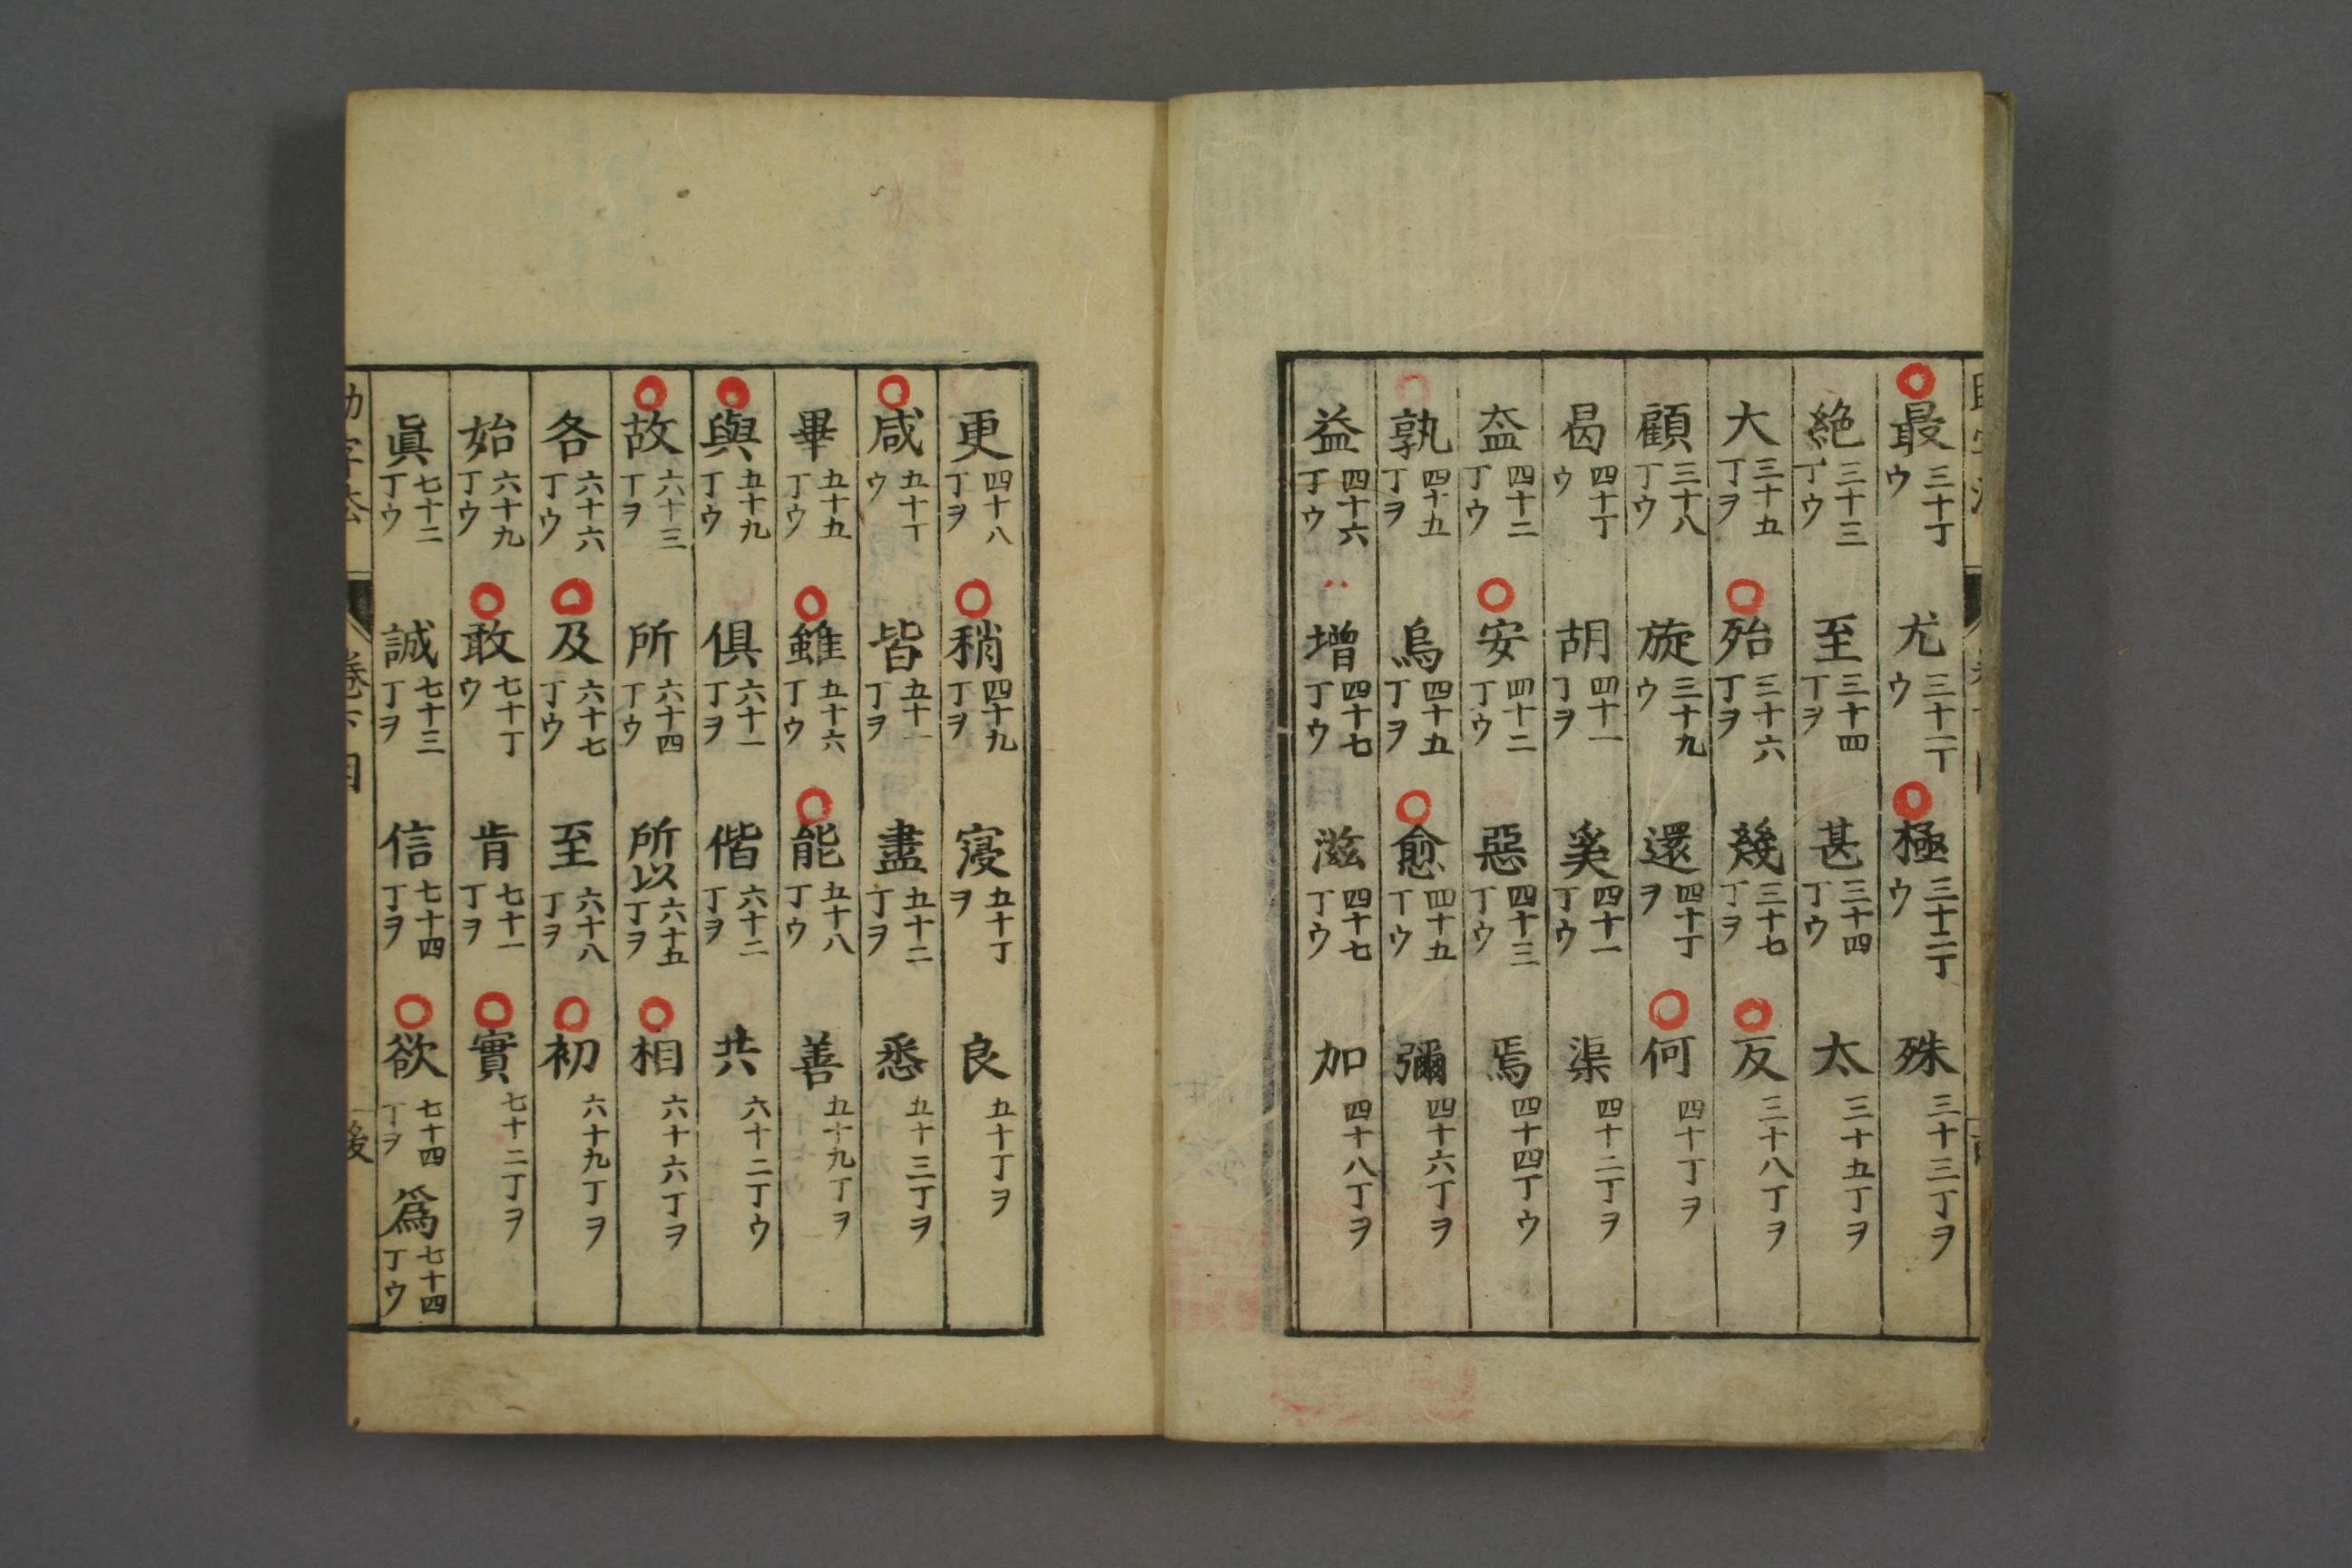 最三十丁ウ 尤三十一丁ウ 極三十二丁ウ 殊三十三丁ヲ
絶三十三丁ウ 至三十四丁ヲ 甚三十四丁ウ 太三十五丁ヲ
大三十五丁ヲ 殆三十六丁ヲ 幾三十七丁ヲ 反三十八丁ヲ
顧三十八丁ウ 旋三十九ウ 還四十丁ヲ 何四十丁ヲ
曷四十丁ウ 胡四十一丁ヲ 奚四十一丁ウ 渠四十二丁ヲ
盇四十二丁ウ 安四十二丁ウ 惡四十三丁ウ 焉四十四丁ウ
孰四十五丁ヲ 烏四十五丁ヲ 愈四十五丁ウ 彌四十六丁ヲ
益四十六丁ウ 増四十七丁ウ 滋四十七丁ウ 加四十八丁ヲ
更四十八丁ヲ 稍四十九丁ヲ 寖五十丁ヲ 良五十丁ヲ
咸五十丁ウ 皆五十一丁ヲ 盡五十二丁ヲ 悉五十三丁ヲ
畢五十五丁ウ 雖五十六丁ウ 能五十八丁ウ 善五十九丁ヲ
與五十九丁ウ 倶六十一丁ヲ 偕六十二丁ヲ 共六十二丁ウ
故六十三丁ヲ 所六十四丁ウ 所以六十五丁ヲ 相六十六丁ヲ
各六十六丁ウ 及六十七丁ウ 至六十八丁ヲ 初六十九丁ヲ
始六十九丁ウ 敢七十丁ウ 肯七十一丁ヲ 實七十二丁ヲ
眞七十二丁ウ 誠七十三丁ヲ 信七十四丁ヲ 欲七十四丁ヲ 爲七十四丁ウ
卷下目